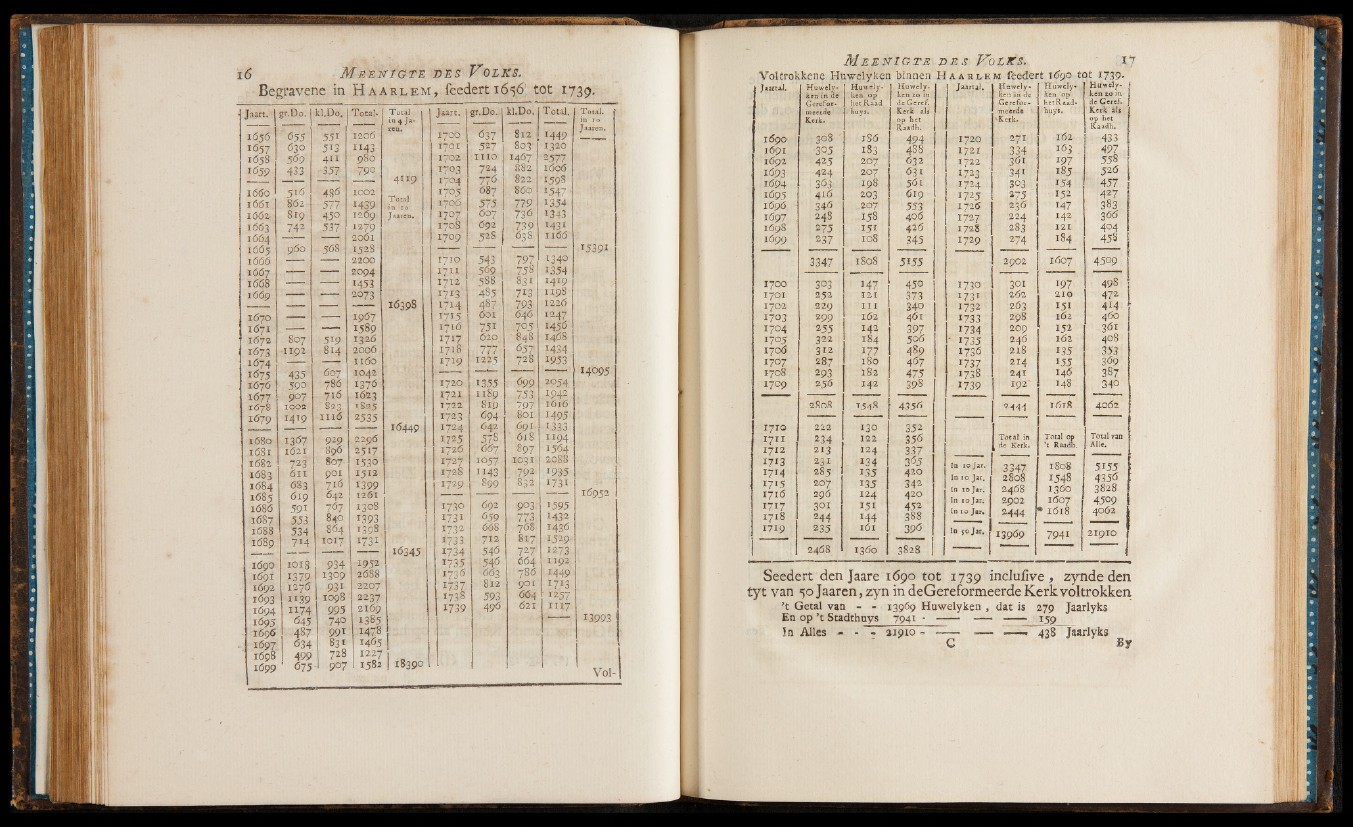 16 MEENIGTE DES VOLKS.
Begravene in HAARLEM, seedert 1656 tot 1739.
Jaart. gr.Do. kl.Do. Total. Total in 4 Jaren.
1656 655 551 1206
1657 630 513 1143
1658 569 411 980
1659 433 357 790
4119
1660 516 486 1002
1661 862 577 1439
Total in 10 Jaaren.
1662 819 450 1269
1663 742 537 1279
1664 — — 2061
1665 960 568 1528
1666 — — 2200
1667 — — 2094
1668 — — 1453
1669 — — 2073
16398
1670 — — 1967
1671 — — 1589
1672 807 519 1326
1673 1192 814 2006
1674 — — 1160
1675 435 607 1042
1676 590 786 1376
1677 907 716 1623
1678 1002 823 1825
1679 1419 1116 2535
16449
1680 1367 929 2296
1681 1621 896 2517
1682 723 807 1530
1683 611 901 1512
1684 683 716 1399
1685 619 642 1261
1686 591 767 1308
1687 553 840 1393
1688 534 864 1398
1689 714 1017 1731
16345
1690 1018 934 1952
1691 1379 1309 2688
1692 1276 931 2207
1693 1139 1098 2237
1694 1174 995 2169
1695 645 740 1385
1696 487 991 1478
1697 634 831 1465
1698 499 728 1227
1699 675 907 1582 18390
Jaart. gr.Do. kl.Do. Total. Total. in 10 Jaaren.
1700 637 812 1449
1701 527 803 1320
1702 1110 1467 2577
1703 724 882 1606
1704 776 822 1598
1705 687 860 1547
1706 575 779 1354
1707 607 736 1343
1708 692 739 1431
1709 528 638 1166
15391
1710 543 797 1340
1711 569 758 1354
1712 588 831 1419
1713 485 713 1198
1714 487 793 1226
1715 601 646 1247
1716 751 705 1456
1717 620 848 1468
1718 777 657 1434
1719 1225 728 1953
14095
1720 1355 699 2054
1721 1189 753 1942
1722 819 797 1616
1723 694 801 1495
1724 642 691 1333
1725 578 618 1194
1726 667 897 1564
1727 1057 1031 2088
1728 1143 792 1935
1729 899 832 1731
16952
1730 692 903 1595
1731 659 773 1432
1732 668 768 1436
1733 712 817 1529
1734 546 727 1273
1735 546 664 1192
1736 663 786 1449
1737 812 901 1713
1738 593 664 1257
1739 496 621 1117
13993
Vol-
MEENIGTE DES VOLKS. 17
Voltrokkene Huwelyken binnen HAARLEM seedert 1690 tot 1739.
Jaartal. Huwelyken in de Gereformeerde Kerk. Huwelyken op het Raadhuys. Huwelyken zo in de Geref. Kerk als op het Raadh.
1690 308 186 494
1691 305 183 488
1692 425 207 632
1693 424 207 631
1694 363 198 561
1695 416 203 619
1696 346 207 553
1697 248 158 406
1698 275 151 426
1699 237 108 345
3347 1808 5155
1700 303 147 450
1701 252 121 373
1702 229 111 340
1703 299 162 461
1704 255 142 397
1705 322 184 506
1706 312 177 489
1707 287 180 467
1708 293 182 475
1709 256 142 398
2808 1548 4356
1710 222 130 352
1711 234 122 356
1712 213 124 337
1713 231 134 365
1714 285 135 420
1715 207 135 342
1716 296 124 420
1717 301 151 452
1718 244 144 388
1719 235 161 396
2468 1360 3828
Jaartal. Huwelyken in de Gereformeerde Kerk. Huwelyken op het Raadhuys. Huwelyken zo in de Geref. Kerk als op het Raadh.
1720 271 162 433
1721 334 163 497
1722 361 197 558
1723 341 185 526
1724 303 154 457
1725 275 152 427
1726 236 147 383
1727 224 142 366
1728 283 121 404
1729 274 184 458
2902 1607 4509
1730 301 197 498
1731 262 210 472
1732 263 151 414
1733 298 162 460
1734 209 152 361
1735 246 162 408
1736 218 135 353
1737 214 155 369
1738 241 146 387
1739 192 148 340
2444 1618 4062
Total in de Kerk. Total op 't Raadh. Total van Alle.
In 10 Jar. 3347 1808 5155
In 10 Jar. 2808 1548 4356
In 10 Jar. 2468 1360 3828
In 10 Jar. 2902 1607 4509
In 10 Jar. 2444 1618 4062
In 50 Jar. 13969 7941 21910
Seedert den Jaare 1690 tot 1739 inclusive, zynde den
tyt van 50 Jaaren, zyn in de Gereformeerde Kerk voltrokken
't Getal van - - 13969 Huwelyken, dat is 279 Jaarlyks
En op 't Stadthuys 7941 - — — — 159
In Alles - - - 21910 - — — — 438 Jaarlyks
C By